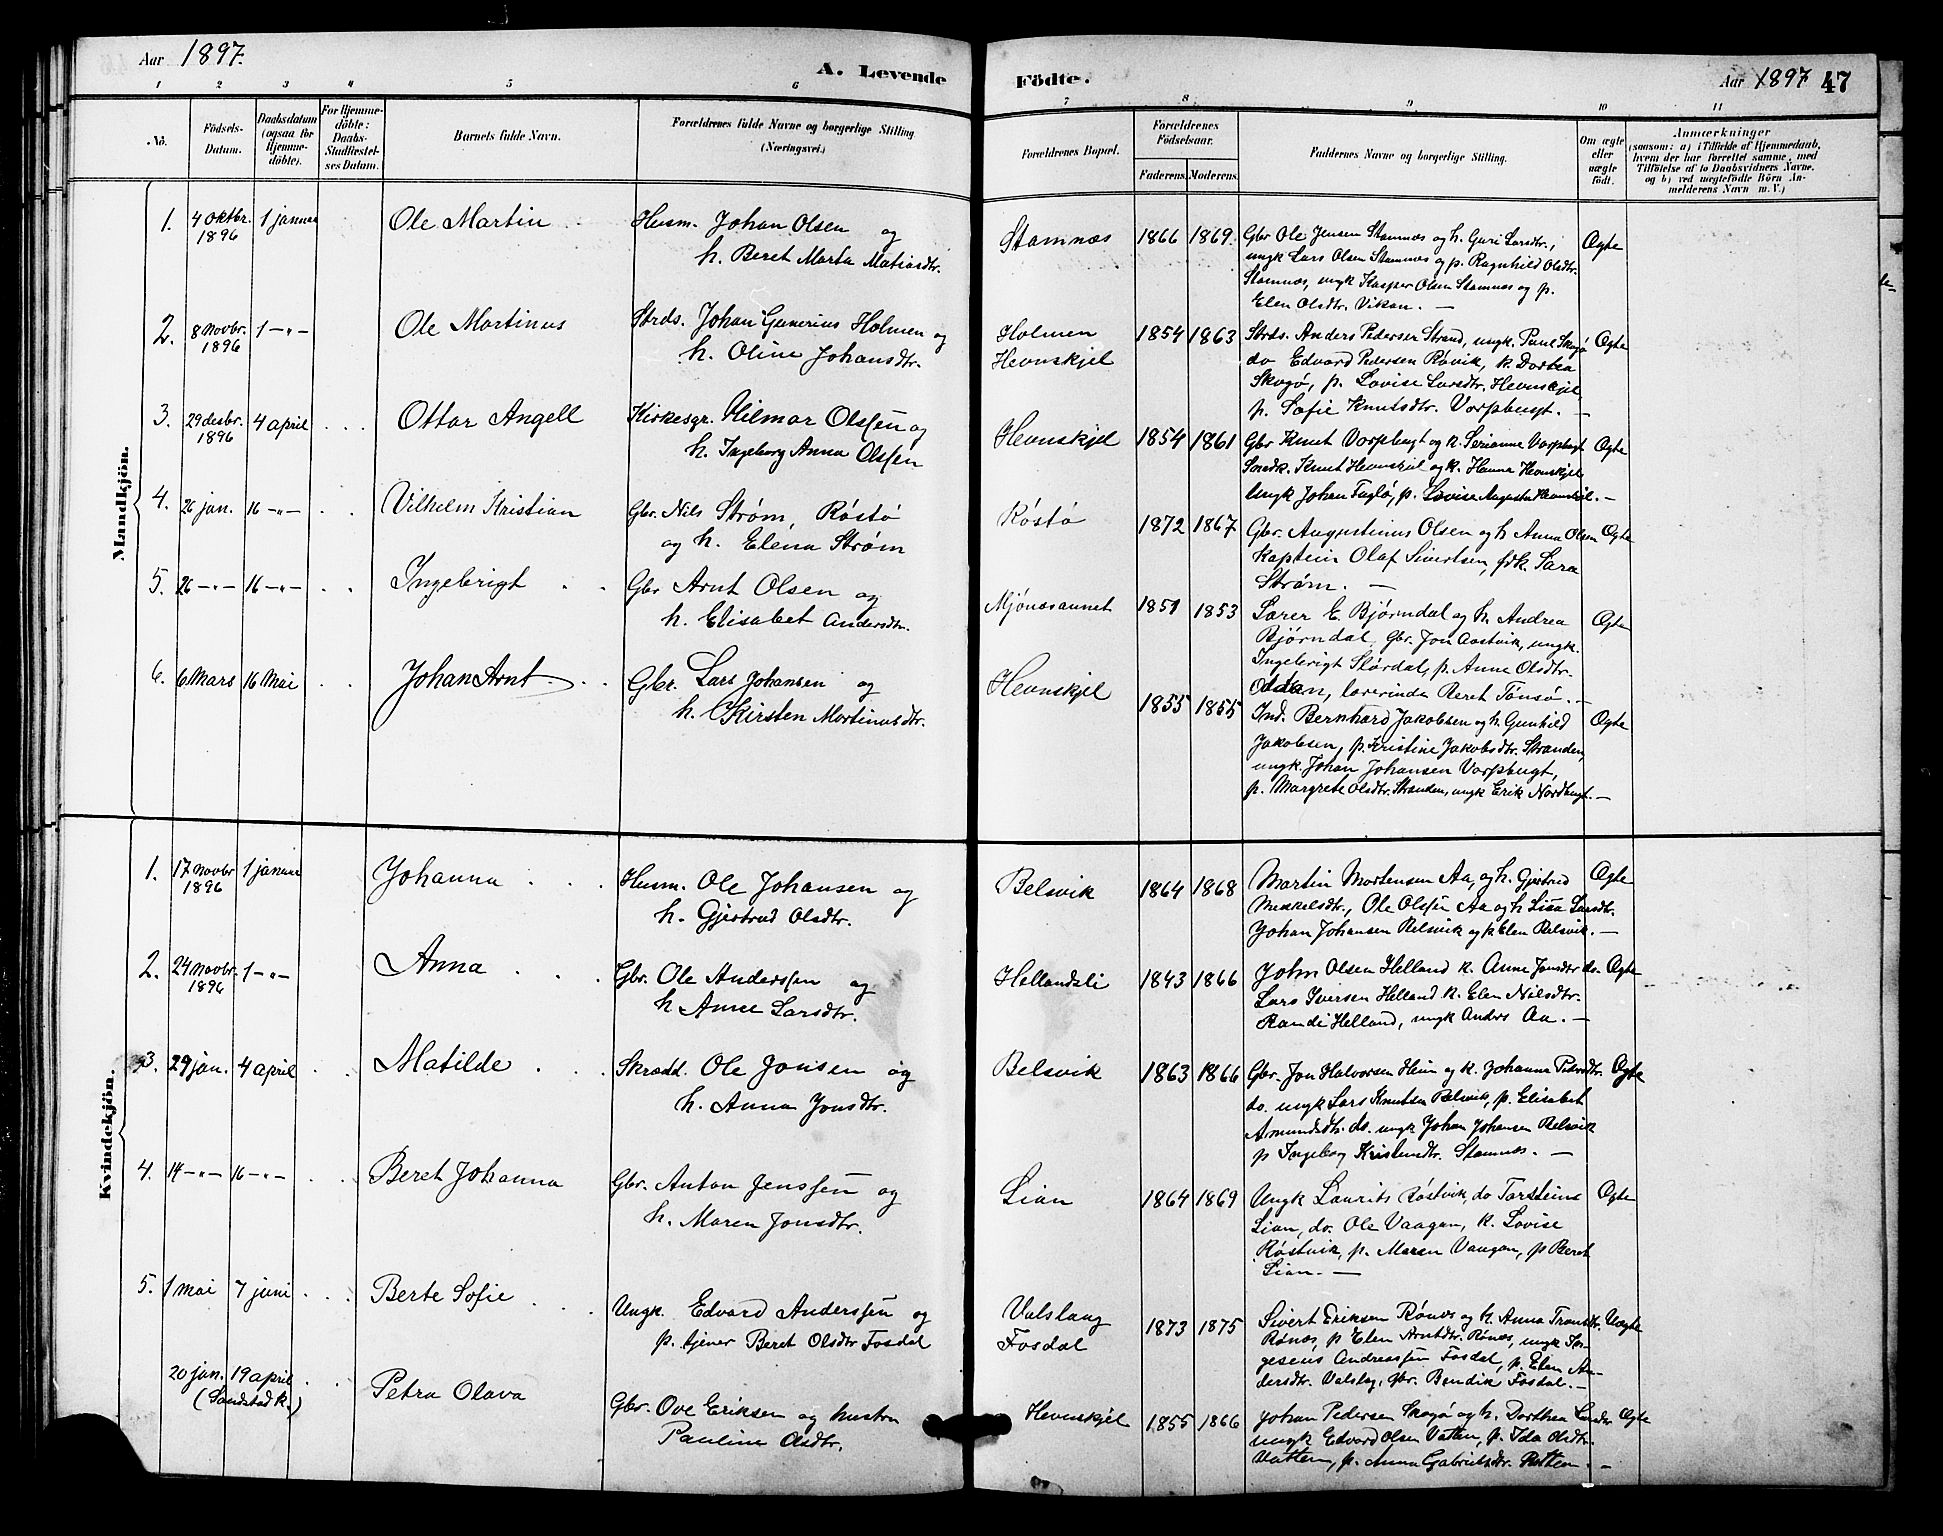 Aar 1897.
A. Levende
Födte.
Aar 1897
47
1 2 3 4 5 6 7 8 9 10 11
No.
Födsels-
Datum.
Daabsdatum
(ogsaa for
Hjemme-
döbte).
For Hjemme-
döbte:
Daabs-
Stadfæstel-
ses Datum.
Barnets fulde Navn.
Forældrenes fulde Navne og borgerlige Stilling
(Næringsvei.)
Forældrenes Bopæl.
Forældrenes
Födselsaar.
Faderens. Moderens.
Faddernes Navne og borgerlige Stilling.
Om ægte
eller
uægte
födt.
Anmærkninger
(saasom: a) i Tilfælde af Hjemmedaab,
hvem der har forrettet samme, med
Tilföielse af to Daabsvidners Navne.
og b) ved uægtefödte Börn An-
melderens Navn m. V.)
Mandkjön.
1. 4 Oktbr. 1896
1 januar
Ole Martin
Husm. Johan Olsen og
h. Beret Marta Matiasdtr.
Stamnæs
1866 1869.
Gbr Ole Jensen Stamnæs og h. Guri Larsdtr.,
ungk Lars Olsen Stamnæs og p. Ragnhild Olsdtr.
Stamnæs, ungk Kasper Olsen Stamnæs og p.
Elen Olsdtr. Vikan. —
Ægte
2. 8 Novbr. 1896
1 —„—
Ole Martinus
Strds. Johan Gunerius Holmen og
h. Oline Johansdtr.
Holmen
Hevnskjel
1854 1863
Strds. Anders Pedersen Strand, ungk. Paul Skogø
do Edvard Pedersen Røvik, k. Dortea
Skogø, p. Lovise Larsdtr. Hevnskjel
p. Sofie Knutsdtr. Vorpbugt. —
Ægte
3. 29 desbr. 1896
4 april
Ottar Angell
Kirkesgr. Hilmar Olssen og
h. Ingeborg Anna Olssen
Hevnskjel
1854 1861
Gbr Knut Vorpbugt og k. Serianna Vorpbugt
Smedk. Knut Hevnskjel og k. Hanna Hevnskjel
Ungk Johan Fuglø, p. Lovise Augusta Hevnskjel. —
Ægte
4. 26 jan.
16 —„—
Vilhelm Kristian
Gbr. Nils Strøm, Røstø
og h. Elena Strøm
Røstø
1872 1867
Gbr. Augustinus Olsen og h Anna Olsen
Kaptein Olaf Sivertsen, frk. Sara
Strøm. —
Ægte
5. 26 —„—
16 —„—
Ingebrigt
Gbr Arnt Olsen og
h. Elisabet Andersdtr.
Mjønæsaunet
1851 1853
Lærer E. Bjørndal og h. Andrea
Bjørndal, gbr. Jon Aastvik, ungk.
Ingebrigt Slørdal, p. Anne Olsdtr.
Oddan, lærerinde Beret Tønsø. —
Ægte
6. 6 Mars
16 Mai
Johan Arnt
Gbr. Lars Johansen og
h. Kirsten Martinusdtr.
Hevnskjel
1855 1855
Ind. Bernhard Jakobsen og h. Gunhild
Jakobsen, p. Kristine Jakobsdtr. Stranden,
ungk. Johan Johansen Vorpbugt,
p. Margrete Olsdtr. Stranden, ungk Erik Nordbugt. —
Ægte
Kvindekjön.
1. 17 Novbr 1896
1 januar
Johanna
Husm. Ole Johansen og
h. Gjertrud Olsdtr.
Belsvik
1864 1868
Martin Mortensen Aa, og h. Gjertrud
Meskelsdtr., Ole Olssen Aa og h Lisa Larsdtr.
Johan Johansen Belsvik og k Elen Belsvik. —
Ægte
2. 24 Novbr. 1896
1 —„—
Anna
Gbr. Ole Anderssen og
h Anne Larsdtr.
Hellandsli
1843 1866
John Olsen Helland k. Anne Jonsdtr do.
Lars Iversen Helland k. Elen Nilsdtr.
Randi Helland, ungk Anders Aa. —
Ægte
3. 29 jan.
4 april
Matilde
Skrædd. Ole Jonsen og
h. Anna Jonsdtr.
Belsvik
1863 1866
Gbr. Jon Halvorsen Heim og k. Johanna Pedersdtr.
do. ungk Lars Knutsen Belsvik, p. Elisabet
Amundsdtr. do. ungk Johan Johansen Belsvik
p Ingeborg Kristendtr. Stamnæs. —
Ægte
4. 14 —„—
16 —„—
Beret Johanna
Gbr. Anton Jenssen og
h. Maren Jonsdtr.
Lian
1864 1869
Ungk Laurits Røstvik, do Torstein
Lian, do. Ole Vaagan, k. Lovise
Røstvik, p. Maren Vaagan, p Beret
Lian. —
Ægte
5. 1 Mai
7 juni
Berte Sofie
Ungk. Edvard Anderssen og
p. tjener Beret Olsdtr Fosdal
Valslaug
Fosdal
1873 1875
Sivert Eriksen Rønæs og h. Anna Transdtr.
Rønæs, p Elen Arntdtr. Rønæs, ungk Jør-
gesens Andreassen Fosdal, p. Elen An-
dersdtr. Valslag, gbr. Bendik Fosdal. —
Uægte
20 jan. 19 april
(Sandstad k.)
Petra Olava
Gbr. Ove Eriksen og hustru
Pauline Olsdtr.
Hevnskjel
1855 1866
Johan Pedersen Skogø og h. Dorthea
ungk Edvard Olsen Vatten, p. Ida Olsdtr.
Vatten, p. Anna Gabrielsdtr. Ratten. —
Ægte